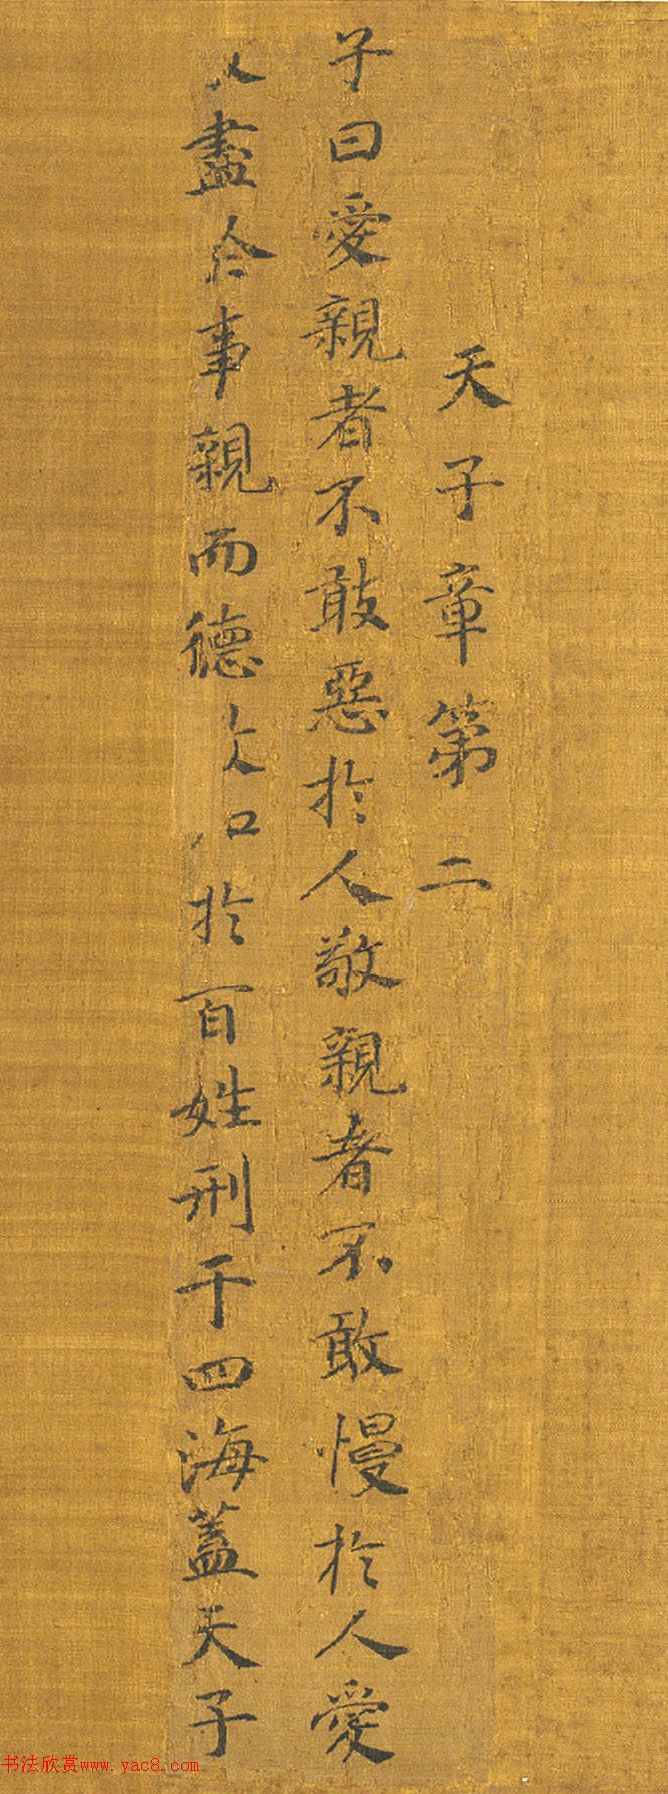 天子章第二
子曰愛親者不敢惡於人敬親者不敢慢於人愛
盡於事親而德於百姓刑于四海蓋天子
书法欣赏www.yac8.com